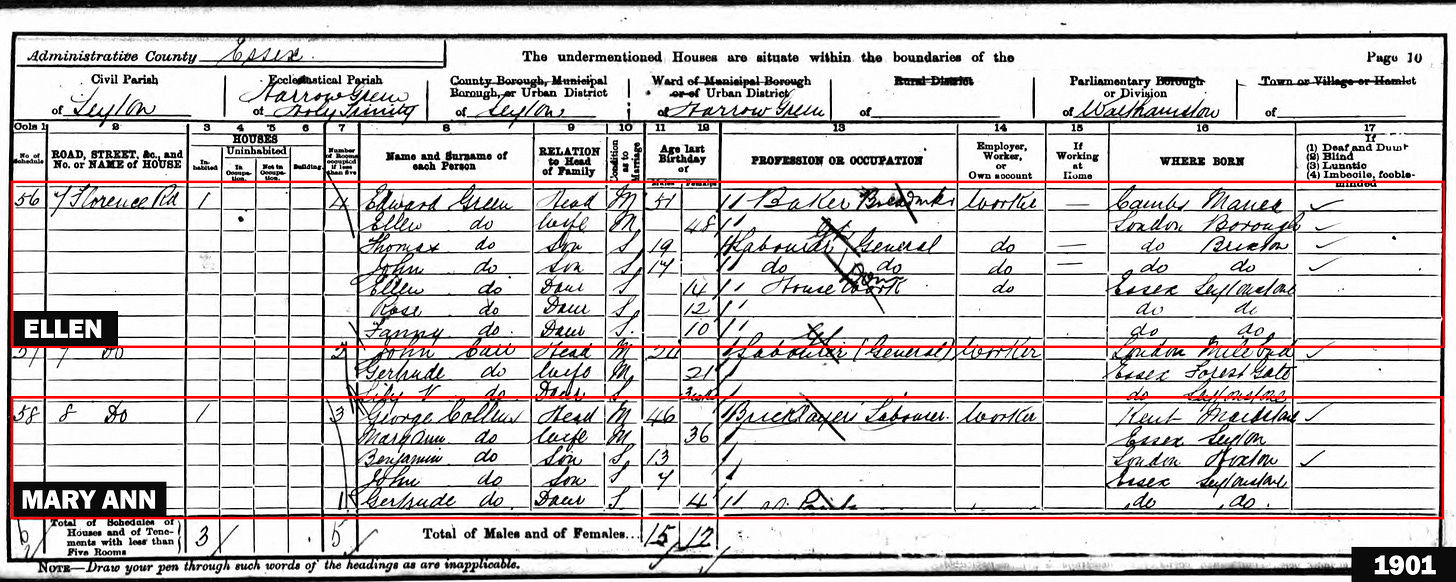 Administrative County Essex The undermentioned Houses are situate within the boundaries of the Page 10
Civil Parish Ecclesiastical Parish County Borough, Municipal Ward of Municipal Borough Rural District Parliamentary Borough Town or Village or Hamlet
of Leyton Harrow Green of Holy Trinity Borough, or Urban District of Leyton or of Urban District of Harrow Green of or Division of Walthamstow of
Cols 1 2 3 4 5 6 7 8 9 10 11 12 13 14 15 16 17
No of Schedule ROAD, STREET, &c., and No. or NAME of HOUSE HOUSES Inhabited Uninhabited In Occupation. Not in Occupation. Building Number of Rooms occupied if less than five Name and Surname of each Person RELATION to Head of Family Condition as to Marriage Age last Birthday of Males Females PROFESSION OR OCCUPATION Employer, Worker, or Own account If Working at Home WHERE BORN If (1) Deaf and Dumb (2) Blind (3) Lunatic (4) Imbecile, feeble-minded
56 7 Florence Rd 1 4 Edward Green Head M 51 Baker Worker — Cambs
Ellen do Wife M 48 London
Thomas do Son S 19 Labourer General do — do Brixton
John do Son S 17 do do do — do do
Ellen do Daur S 14 House Work do Essex Leytonstone
Rose do Daur S 12 do do
Fanny do Daur S 10 do do
ELLEN
57 7 Do John Head M Labourer (General) Worker London Mile End
Gertrude do Wife M 21 Essex Forest Gate
V do Daur S do Leytonstone
58 8 Do 1 3 George Head M 46 Bricklayers Labourer Worker Kent Maidstone
Mary Ann do Wife M 36 Essex Leyton
Benjamin do Son S 13 London Hoxton
John do Son S 7 Essex Leytonstone
MARY ANN
Gertrude do Daur S 4 do do
6 Total of Schedules of Houses and of Tenements with less than Five Rooms 3 5 Total of Males and of Females... 15 12
NOTE—Draw your pen through such words of the headings as are inapplicable.
1901